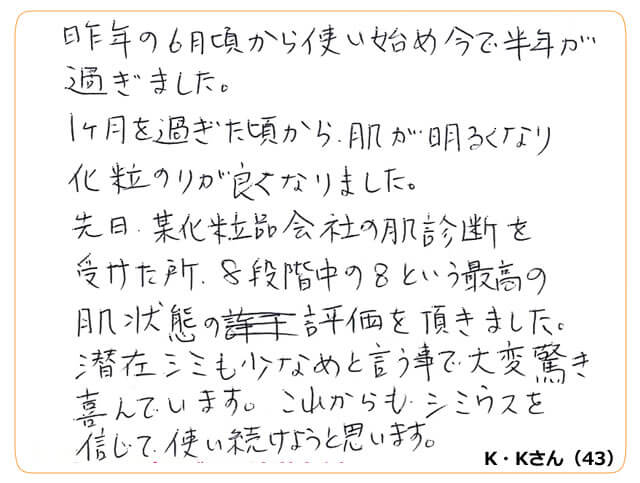 昨年の6月頃から使い始め今で半年が
過ぎました。
1ヶ月を過ぎた頃から、肌が明るくなり
化粧のりが良くなりました。
先日、某化粧品会社の肌診断を
受けた所、8段階中の8という最高の
肌状態の評価を頂きました。
潜在シミも少なめと言う事で大変驚き
喜んでいます。これからも、シミウスを
信じて使い続けようと思います。
K・Kさん（43）